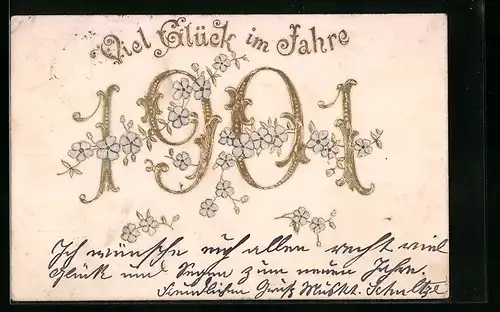 Viel Glück im Jahre
1901
Ich wünsche euch allen recht viel
Glück und Segen zum neuen Jahre.
Freundlichen Gruß Muskt. Schultze